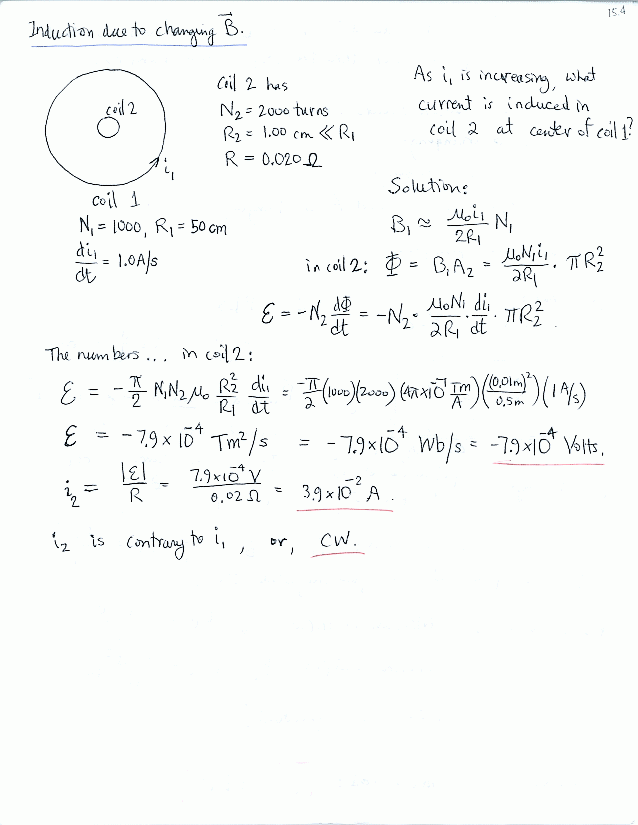 154
Induction due to changing B⃗.
coil 2
i₁
coil 1
N₁ = 1000, R₁ = 50 cm
di₁/dt = 1.0 A/s
Coil 2 has
N₂ = 2000 turns
R₂ = 1.00 cm ≪ R₁
R = 0.020 Ω
As i₁ is increasing, what
current is induced in
coil 2 at center of coil 1?
Solution:
B₁ ≈ μ₀i₁/2R₁ N₁
in coil 2: Φ = B₁A₂ = μ₀N₁i₁/2R₁ · πR₂²
ℰ = -N₂ dΦ/dt = -N₂ · μ₀N₁/2R₁ · di₁/dt · πR₂²
The numbers... in coil 2:
ℰ = -π/2 N₁N₂μ₀ R₂²/R₁ di₁/dt = -π/2 (1000)(2000)(4π×10⁻⁷ Tm/A)((0.01m)²/0.5m)(1 A/s)
ℰ = -7.9 × 10⁻⁴ Tm²/s = -7.9×10⁻⁴ Wb/s = -7.9×10⁻⁴ Volts.
i₂ = |ℰ|/R = 7.9×10⁻⁴ V/0.02 Ω = 3.9×10⁻² A.
i₂ is contrary to i₁, or, CW.